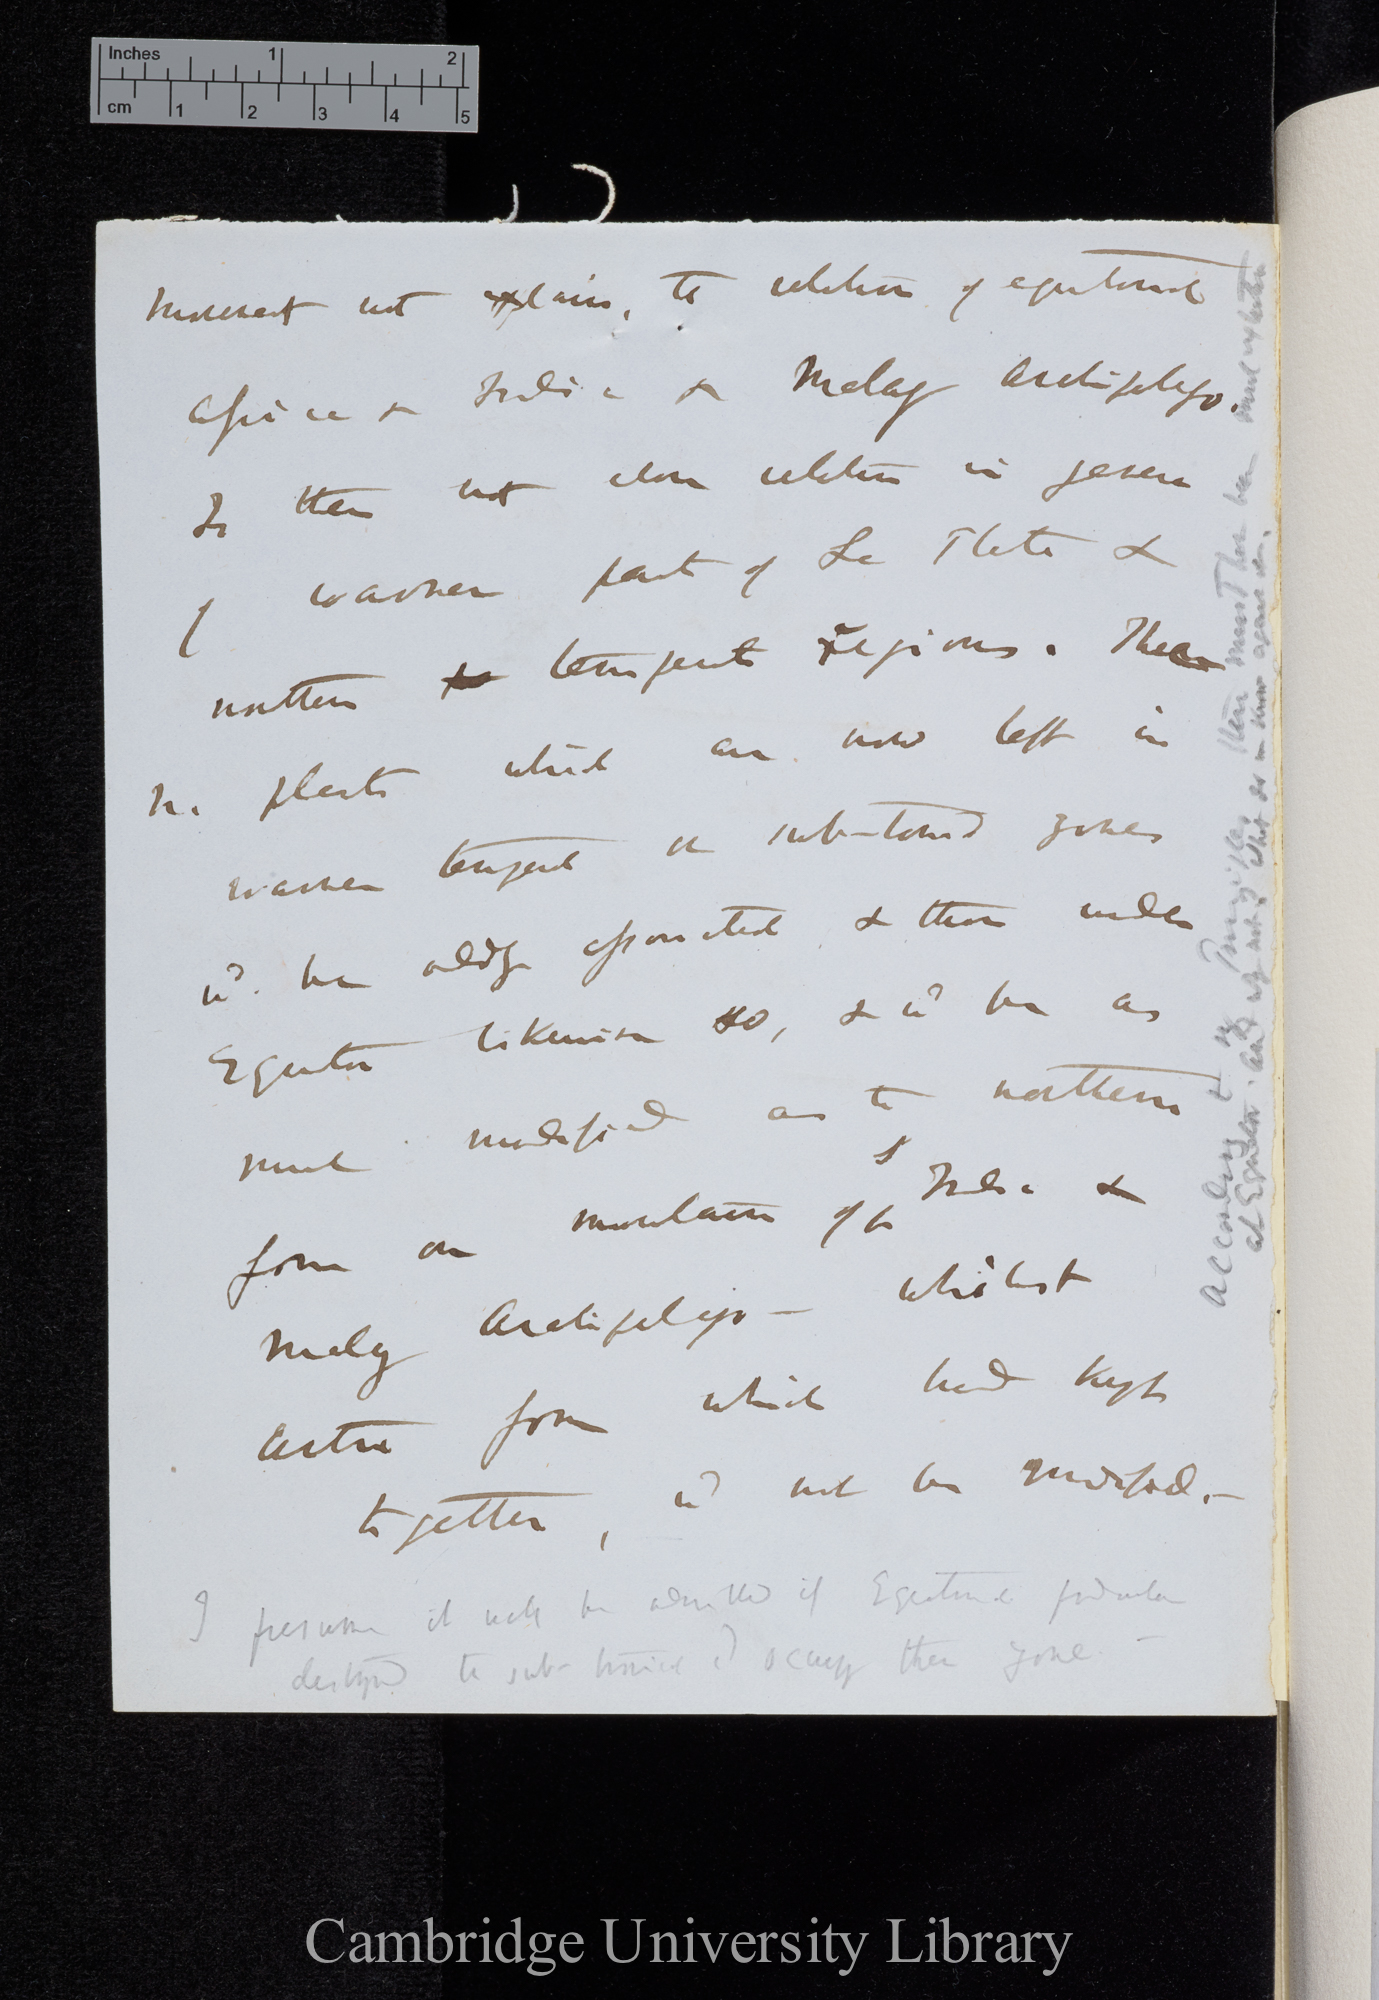 Inches 1 2
cm 1 2 3 4 5
movement not explain, the relation of equatorial
Africa & India & Malay Archipelago.
Is there not close relation in genera
of warmer part of La Plata &
northern temperate regions. The
plants which are now left in
warmer temperate or sub-torrid zones
wd. be oddly associated, & those under
Equator likewise so, & wd be as
much modified as the northern
form on mountains of S. India &
Malay Archipelago — whilst
arctic form which had kept
together, wd not be modified.—
I presume it will be admitted if Equatorial productions
destroyed the sub-tropical wd occupy their zone —
According to my Principles there must have been much extinction
at Equator. and
Cambridge University Library